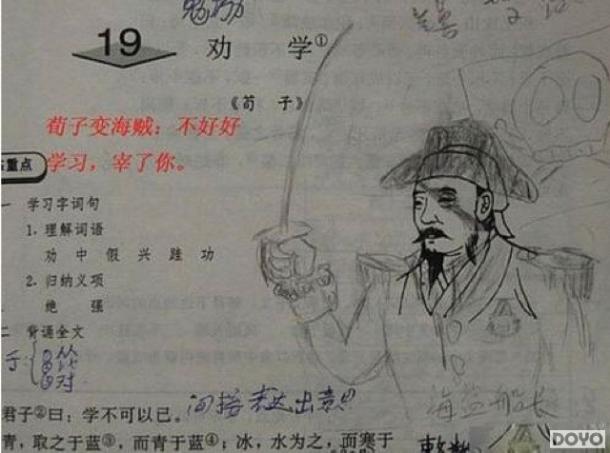 勉励
19 劝 学①
《荀 子》
荀子变海贼：不好好
学习，宰了你。
重点
一 学习字词句
1. 理解词语
劝 中 假 兴 跬 功
2. 归纳义项
绝 强
二 背诵全文
于
从
比
对
君子②曰：学不可以已。
间接表达出意思
青，取之于蓝③，而青于蓝④；冰，水为之，而寒于
海盗船长
DOYO